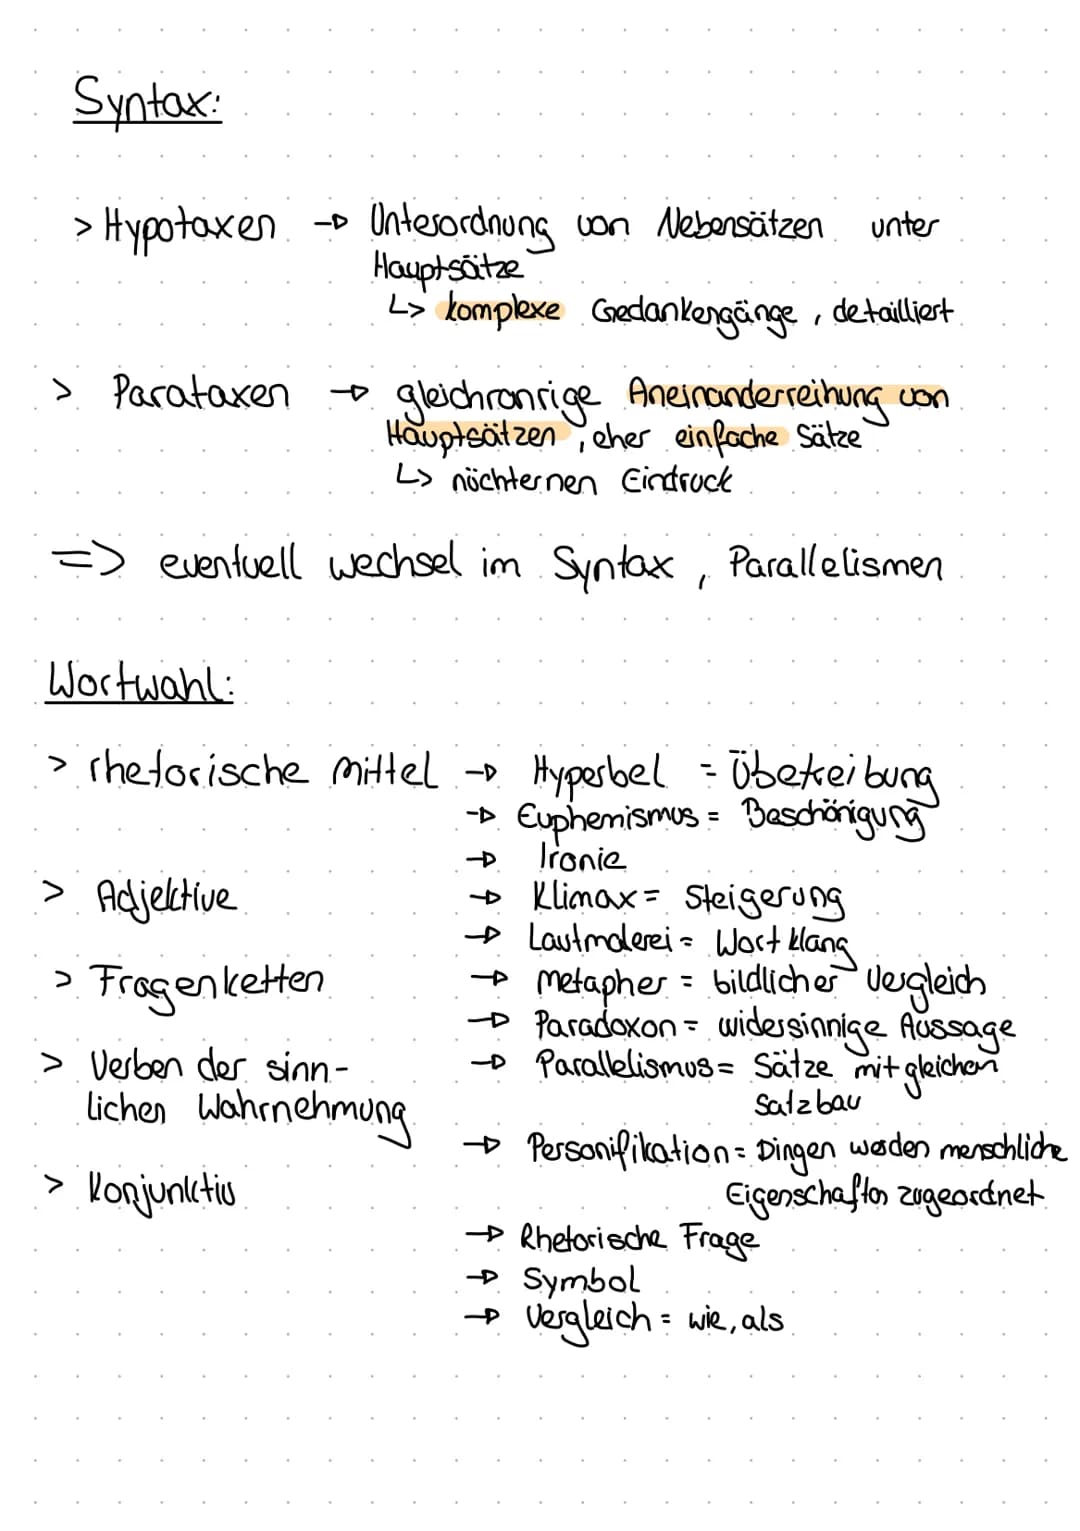 Syntax:
> Hypotaxen → Unterordnung von Nebensätzen unter
Hauptsätze
↳ komplexe Gedankengänge, detailliert
> Parataxen → gleichranrige Aneinanderreihung von
Hauptsätzen, eher einfache Sätze
↳ nüchternen Eindruck
=> eventuell wechsel im Syntax, Parallelismen
Wortwahl:
> rhetorische Mittel → Hyperbel = Übetreibung
→ Euphemismus = Beschönigung
→ Ironie
> Adjektive → Klimax = Steigerung
→ Lautmalerei = Wortklang
> Fragenketten → Metapher = bildlicher Vergleich
→ Paradoxon = widersinnige Aussage
> Verben der sinn- → Parallelismus = Sätze mit gleichen
lichen Wahrnehmung Satzbau
→ Personifikation = Dingen werden menschliche
> Konjunktiv Eigenschaften zugeordnet
→ Rhetorische Frage
→ Symbol
→ Vergleich = wie, als